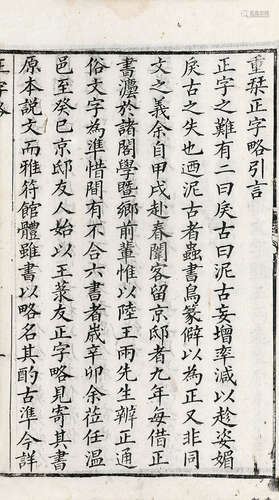 重栞正字略引言
正字之難有二曰戾古曰泥古妄增率減以趁姿媚
戾古之失也迺泥古者蟲書鳥篆僻以為正又非同
文之義余自甲戌赴春闈客留京邸者九年每借正
書灋於諸閣學暨鄉前輩惟以陸王兩先生辨正通
俗文字為準惜閒有不合六書者歲辛卯余莅任温
邑至癸巳京邸友人始以王菉友正字略見寄其書
原本說文而雅符館體雖書以略名其酌古準今詳
正字略